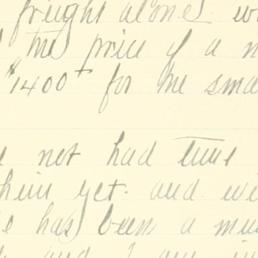 freight alone. w
the price of a n
$1400 for the sma
not had time
him yet. and we
has been a mu
and I am in